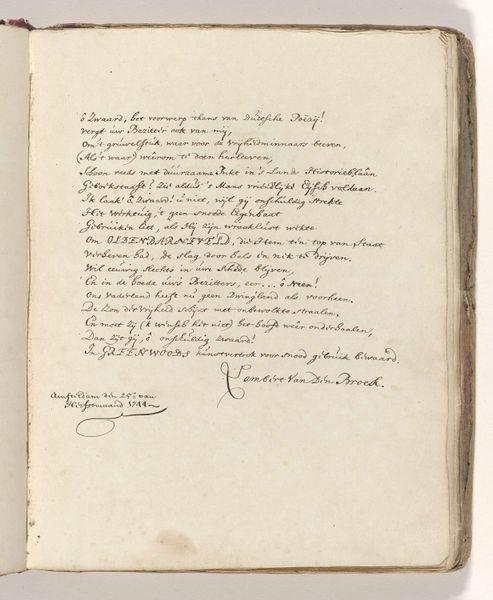 ô Zwaard, het voorwerp thans van Duitsche Poëzij!
vergt uw Bezitter ook van mij,
Om 't gruwelstuk, waar voor de vrijheidminnaars beeven,
(Als 't waar) weêrom te doen herleeven,
Schoon reeds met duurzaame Inkt in 's Lands Historieblaân
Geboekstaaft? Zie aldus 's Mans vriendlijke Eijsch voldaan.
Ik laak' ô Zwaard! u niet, wijl gij onschuldig strekte
Het werktuig, 't geen snoode Eigenbaat
Gebruiken liet, als Hij zijn wraaklust wekte
Om OLDENBARNEVELD, die Hem ten top van Staat
Verheven had, de slag door hals en nek te drijven.
Wil eeuwig slechts in uwe Schede blijven,
En in de hoede uw's Bezitters, eer... ô Neen!
Ons Vaderland heeft nu geen Dwingland als voorheen.
De Zon der vrijheid schijnt met onbewolkte straalen.
En moet zij ('k wensch het niet) het hooft weer onderhaalen,
Dan zijt gij, ô onschuldig Zwaard!
In GREENWOODS kunstvertrek voor snood gebruik bewaard.
Lambert Van Den Broek.
Amsterdam den 25e van
Herfstmaand 1744